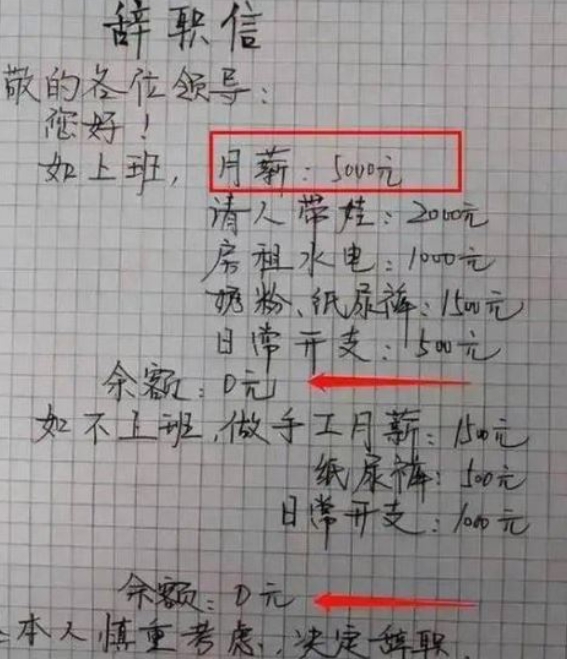 辞职信
敬的各位领导:
您好!
如上班, 月薪: 5000元
请人带娃: 2000元
房租水电: 1000元
奶粉、纸尿裤: 1500元
日常开支: 500元
余额: 0元
如不上班,做手工月薪: 1500元
纸尿裤: 500元
日常开支: 1000元
余额: 0元
本人慎重考虑,决定辞职